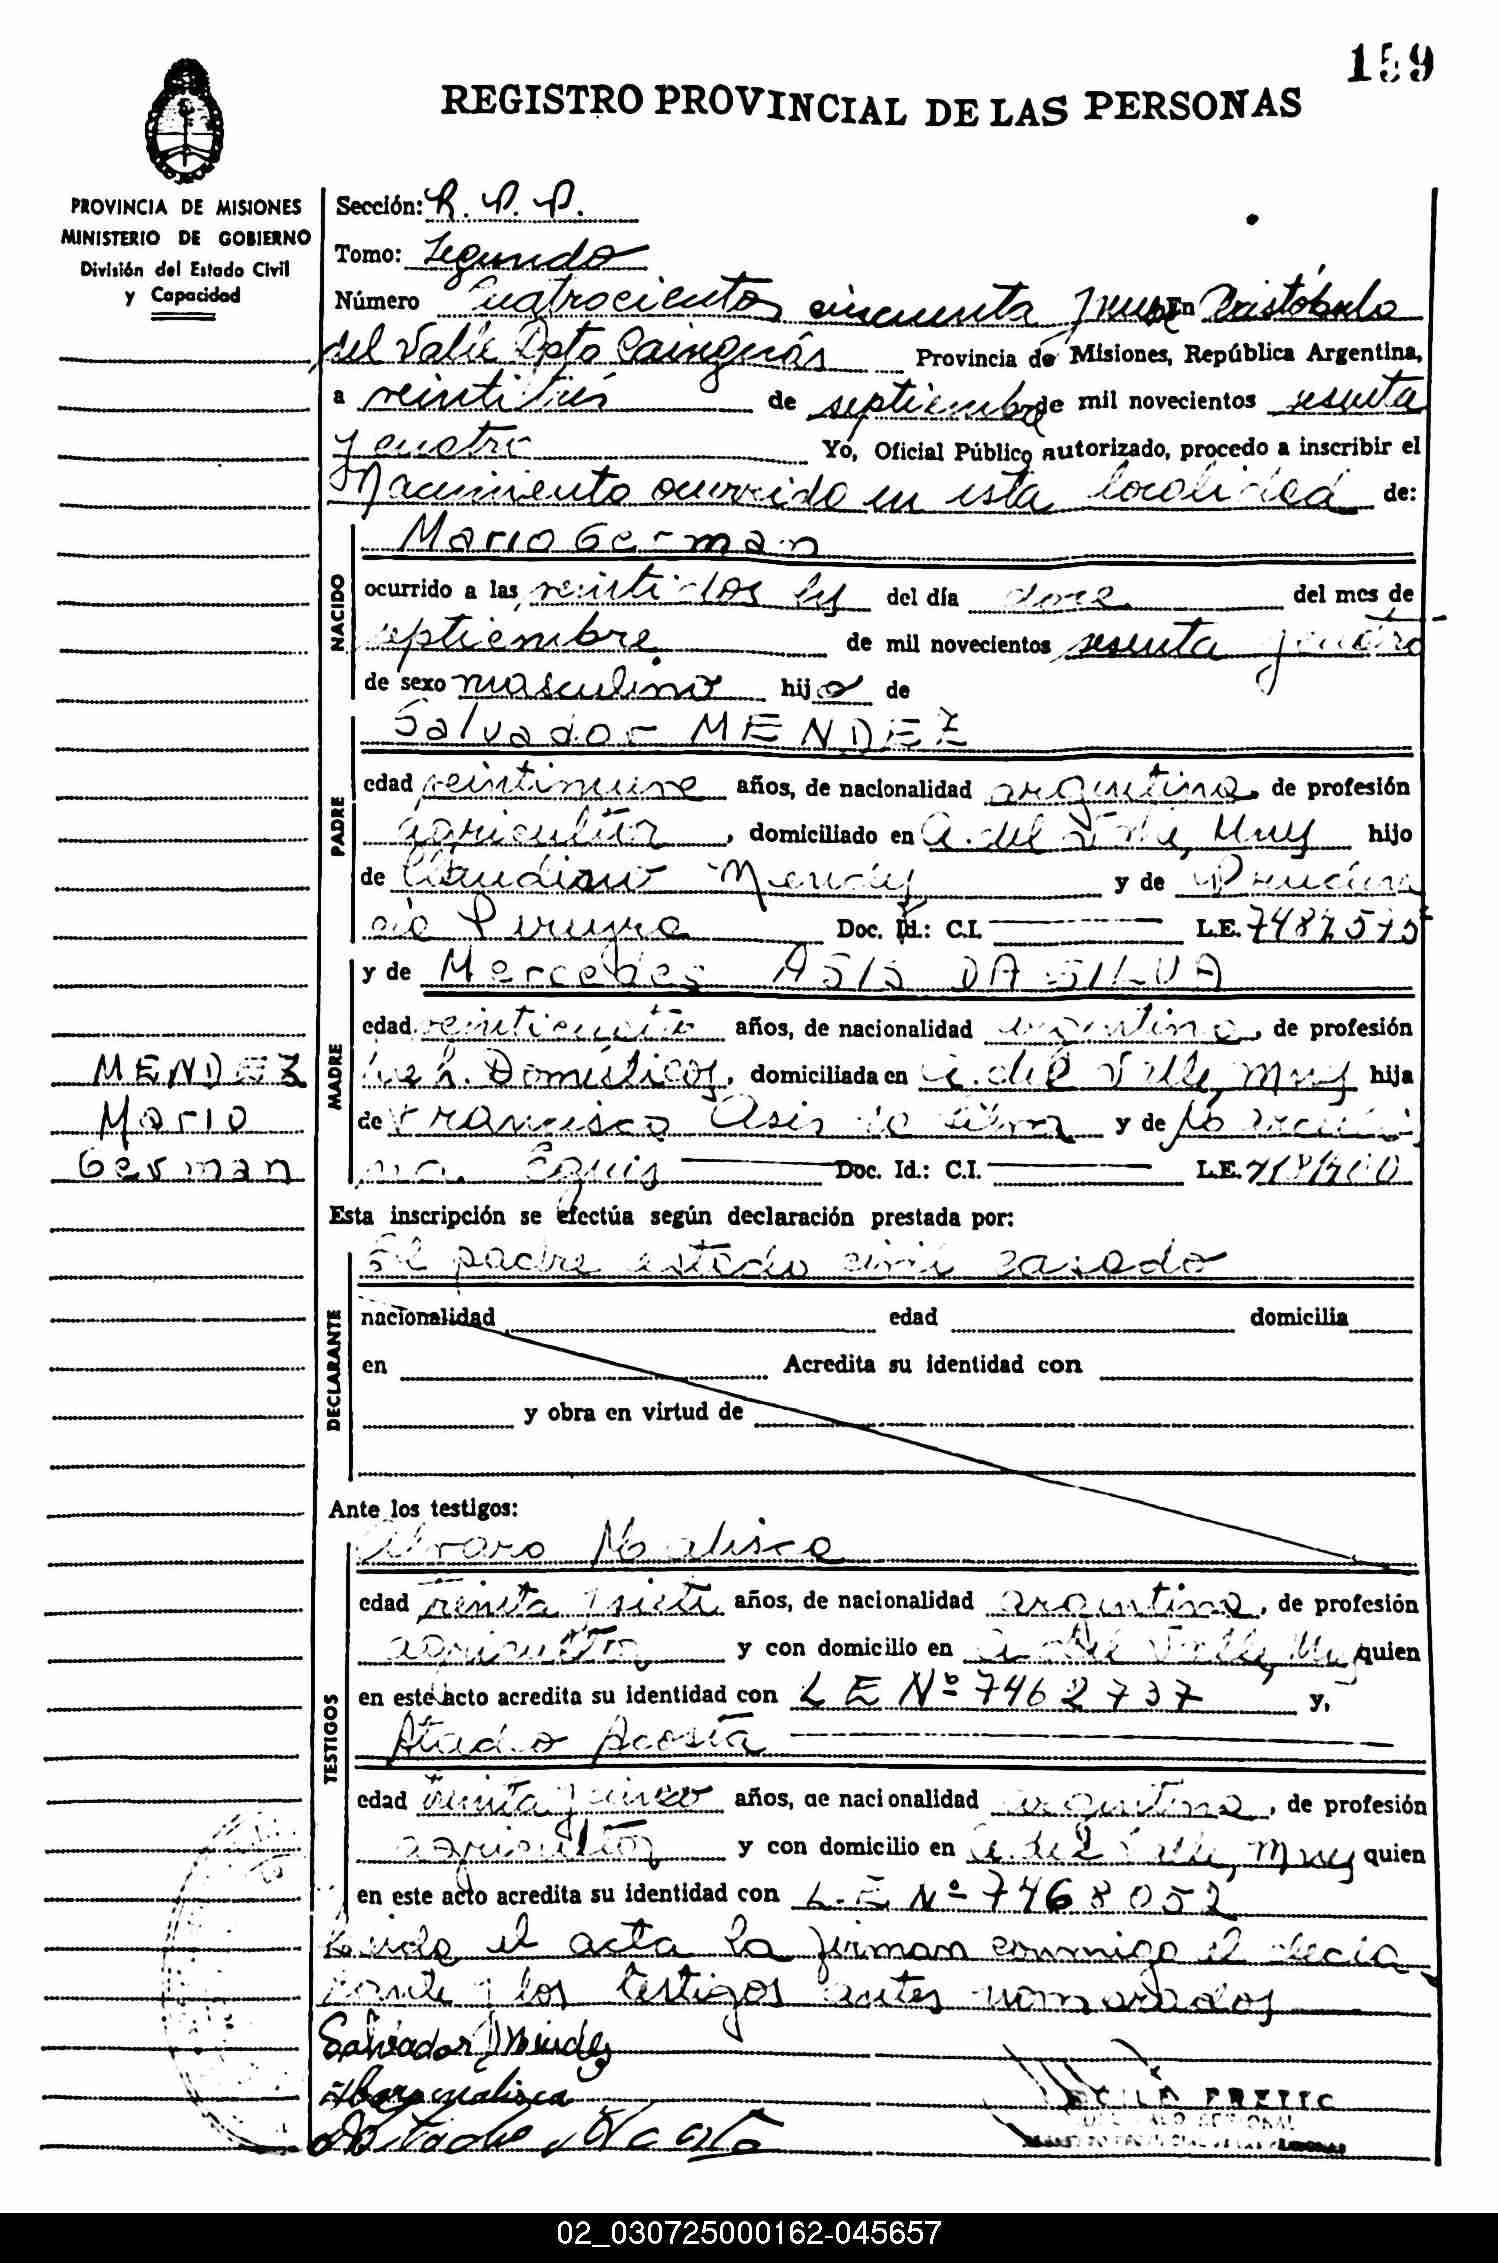 159
REGISTRO PROVINCIAL DE LAS PERSONAS
PROVINCIA DE MISIONES
MINISTERIO DE GOBIERNO
División del Estado Civil
y Capacidad
Sección: R. P. P.
Tomo: Segundo
Número Cuatrocientos cincuenta y nueve En Aristóbulo
del Valle Dpto Cainguás Provincia de Misiones, República Argentina,
a veintitrés de septiembre de mil novecientos sesenta
y cuatro Yo, Oficial Público autorizado, procedo a inscribir el
Nacimiento ocurrido en esta localidad de:
NACIDO
Mario German
ocurrido a las veintidos hs del día doce del mes de
septiembre de mil novecientos sesenta y cuatro
de sexo masculino hijo de
PADRE
Salvador MENDEZ
edad veintinueve años, de nacionalidad argentina, de profesión
agricultor, domiciliado en A. del Valle, Mnes hijo
de Claudiano Mendez y de
Doc. Id.: C.I. L.E. 7487575
MADRE
y de Mercedes ASIS DA SILVA
edad veinticuatro años, de nacionalidad argentina, de profesión
queh. Domésticos, domiciliada en A. del Valle, Mnes hija
de Francisco Asis da Silva y de
Doc. Id.: C.I. L.E.
MENDEZ
Mario
German
Esta inscripción se efectúa según declaración prestada por:
DECLARANTE
El padre estado civil casado
nacionalidad edad domicilia
en Acredita su identidad con
y obra en virtud de
Ante los testigos:
TESTIGOS
Alvaro Malisca
edad treinta y siete años, de nacionalidad argentina, de profesión
agricultor y con domicilio en A. del Valle, Mnes quien
en este acto acredita su identidad con L E Nº 7462737 y,
Acosta
edad treinta y cinco años, de nacionalidad argentina, de profesión
agricultor y con domicilio en A. del Valle, Mnes quien
en este acto acredita su identidad con L. E Nº 7468052
Leida el acta la firman conmigo el decla
rante y los testigos antes nombrados
Salvador Mendez
02_030725000162-045657